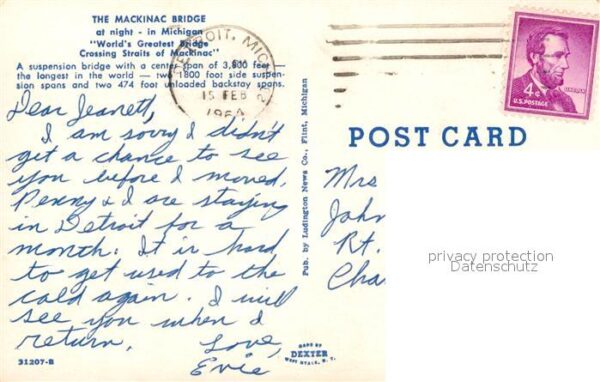 THE MACKINAC BRIDGE
at night - in Michigan
"World's Greatest Bridge
Crossing Straits of Mackinac"
A suspension bridge with a center span of 3,800 feet —
the longest in the world — two 1800 foot side suspen-
sion spans and two 474 foot unloaded backstay spans.
Dear Jeanett,
I am sorry I didn't
get a chance to see
you before I moved.
Penny & I are staying
in Detroit for a
month. It is hard
to get used to the
cold again. I will
see you when I
return.
Love,
Evie
31207-B
MADE BY
DEXTER
WEST NYACK, N. Y.
Pub. by Ludington News Co., Flint, Michigan
DETROIT, MICH.
15 FEB
1964
4¢
LINCOLN
U.S. POSTAGE
POST CARD
Mrs
John
Rt.
Cha
privacy protection
Datenschutz